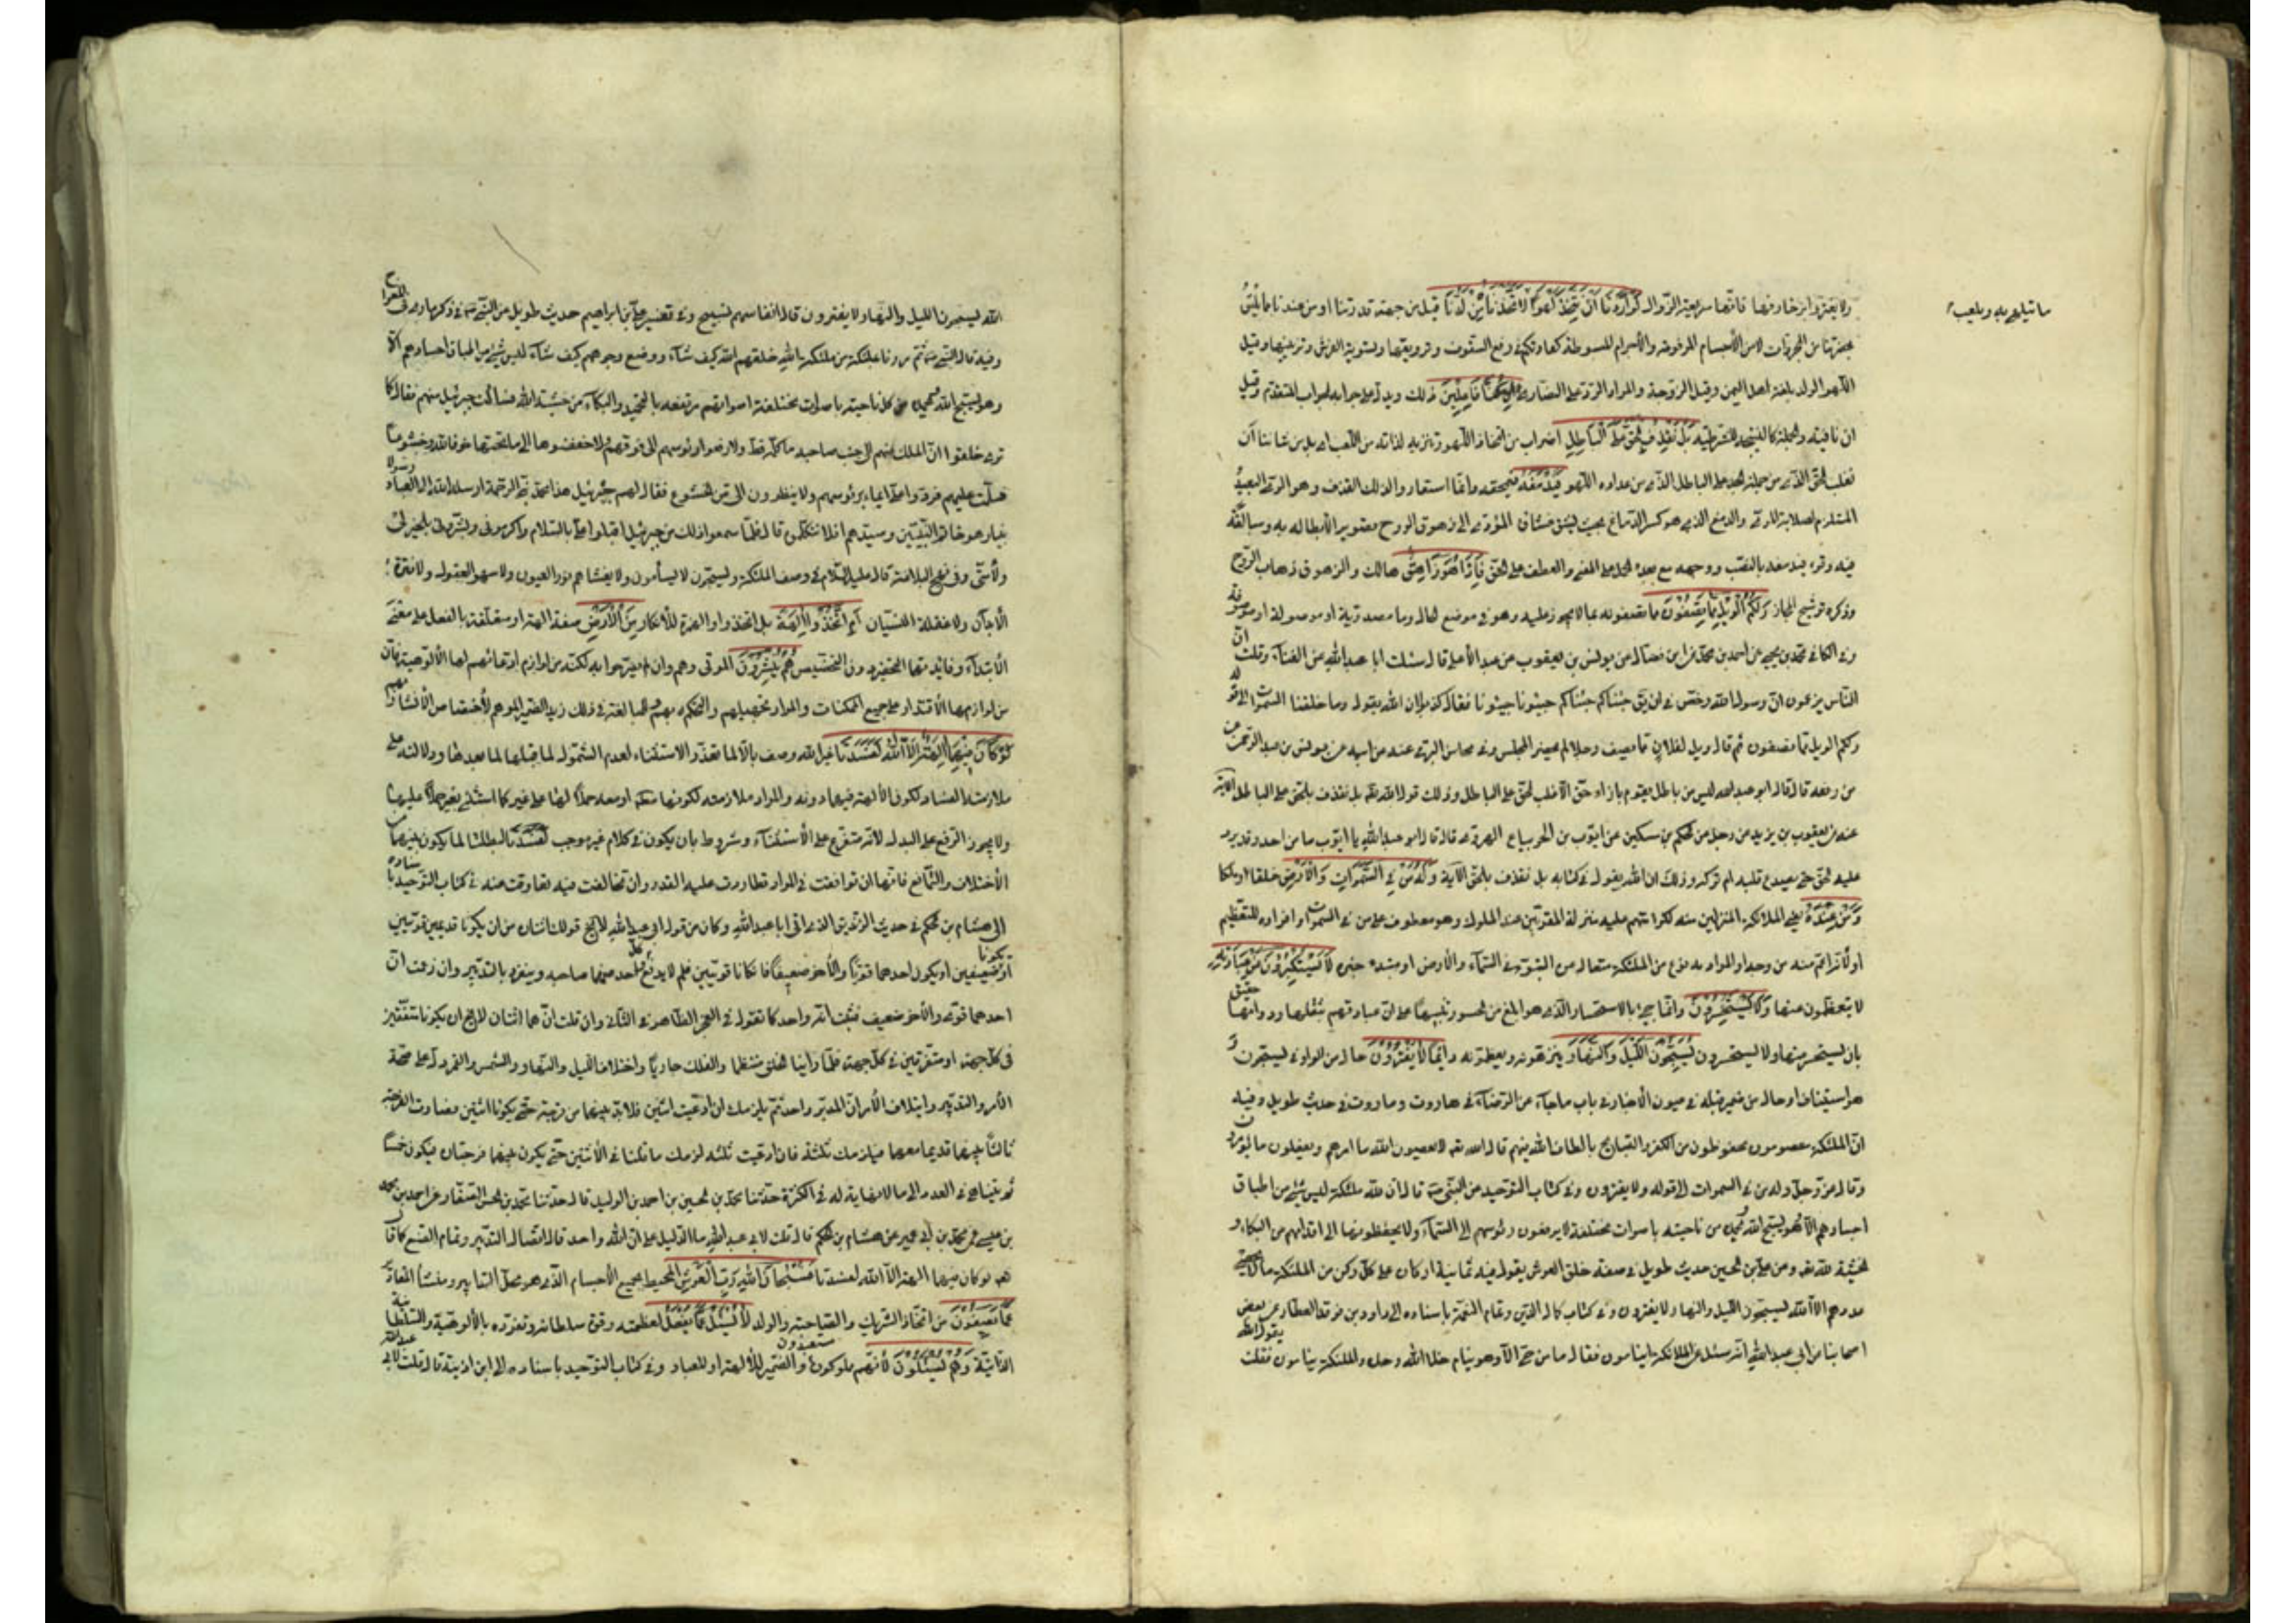 ما يتلهى به ويلعب
ولا يغتروا بزخارفها فانها سريعة الزوال لَوْ أَرَدْنَا أَنْ نَتَّخِذَ لَهْوًا لَاتَّخَذْنَاهُ مِنْ لَدُنَّا قيل من جهة قدرتنا او من عندنا مما يليق
بحضرتنا من المجردات لا من الأجسام المرفوعة والأجرام المبسوطة كعادتكم في رفع السقوف وتزويقها وتسوية الفرش وتزيينها وقيل
اللهو الولد بلغة اهل اليمن وقيل الزوجة والمراد الرد على النصارى إِنْ كُنَّا فَاعِلِينَ ذلك ويدل على جوابه الجواب المتقدم وقيل
ان نافية والجملة كالنتيجة للشرطية بَلْ نَقْذِفُ بِالْحَقِّ عَلَى الْبَاطِلِ اضراب عن اتخاذ اللهو وتنزيه لذاته من اللعب اى بل من شاننا أن
نغلب الحق الذى من جملته الجد على الباطل الذى من عداده اللهو فَيَدْمَغُهُ فيمحقه وانما استعار لذلك القذف وهو الرمى البعيد
المستلزم لصلابة المرمى والدمغ الذى هو كسر الدماغ بحيث يشق غشاؤه المؤدى الى زهوق الروح تصويرا لأبطاله به ومبالغة
فيه وقرء فيدمغه بالنصب ووجهه مع بعده الحمل على المعنى والعطف على الحق فَإِذَا هُوَ زَاهِقٌ هالك والزهوق ذهاب الروح
وذكره ترشيح المجاز وَلَكُمُ الْوَيْلُ مِمَّا تَصِفُونَ مما تصفونه به مما لا يجوز عليه وهو فى موضع الحال وما مصدرية او موصولة او موصوفة
وفى الكافى محمد بن يحيى عن احمد بن محمد عن ابن فضال عن يونس بن يعقوب عن عبد الأعلى قال سئلت ابا عبد الله عن الغناء وقلت ان
الناس يزعمون ان رسول الله رخص فى ان يق جئناكم جئناكم حيونا حيونا فقال كذبوا ان الله يقول وما خلقنا السموات الى قوله
ولكم الويل مما تصفون ثم قال ويل لفلان مما يصف رجلا لم يحضر المجلس وفى محاسن البرقى عنه عن ابيه عن يونس بن عبد الرحمن
من رفعه قال قال ابو عبد الله ليس من باطل يقوم بازاء حق الا غلب الحق على الباطل وذلك قول الله بل نقذف بالحق على الباطل الآية
عنه عن يعقوب بن يزيد عن رجل عن الحكم بن مسكين عن ايوب بن الحر بياع الهروى قال قال ابو عبد الله يا ايوب ما من احد وقد يرد
عليه الحق حتى يصدع قلبه ام تركه وذلك ان الله يقول فى كتابه بل نقذف بالحق الآية وَلَهُ مَنْ فِي السَّمَوَاتِ وَالْأَرْضِ خلقا او ملكا
وَمَنْ عِنْدَهُ يعنى الملائكة المنزلين منه لكرامتهم عليه منزلة المقربين عند الملوك وهو معطوف على من فى السموات وافراده للتعظيم
او لأنه اعم منه من وجه او المراد به نوع من الملئكة متعال من التبوء فى السماء والأرض او مبتدء خبره لَا يَسْتَكْبِرُونَ عَنْ عِبَادَتِهِ
لا يتعظمون عنها وَلَا يَسْتَحْسِرُونَ وانما جيء بالاستحسار الذى هو ابلغ من الحسور تنبيها على ان عبادتهم بثقلها ودوامها حقيق
بان يستحسر منها ولا يستحسرون يُسَبِّحُونَ اللَّيْلَ وَالنَّهَارَ ينزهونه ويعظمونه دائما لَا يَفْتُرُونَ حال من الواو فى يسبحون و
هو استيناف او حال من ضمير قبله فى عيون الأخبار فى باب ما جاء عن الرضا فى هاروت وماروت فى حديث طويل وفيه
ان الملئكة معصومون محفوظون من الكفر والقبايح بالطاف الله فيهم قال الله تعه لا يعصون الله ما امرهم ويفعلون ما يؤمرون
وقال عز وجل وله من فى السموات الى قوله ولا يفترون وفى كتاب التوحيد عن النبى ص قال ان لله ملئكة ليس شئ من اطباق
اجسادهم الا وهو يسبح الله ويحمده من ناحيته باصوات مختلفة لا يرفعون رؤسهم الى السماء ولا يخفضونها الى اقدامهم من البكاء و
الخشية لله تعه وعن على بن الحسين حديث طويل فى صفة خلق العرش يقول فيه ثمانية اركان على كل ركن من الملئكة ما لا يحصى
عددهم الا الله يسبحون الليل والنهار لا يفترون وفى كتاب كمال الدين وتمام النعمة باسناده الى داود بن فرقد العطار عن بعض
اصحابنا عن ابى عبد الله انه سئل عن الملائكة اينامون فقال ما من حى الا وهو ينام خلا الله وحده والملئكة ينامون فقلت يقول الله
الله يسبحون الليل والنهار ولا يفترون قال انفاسهم تسبيح وفى تفسير على بن ابراهيم حديث طويل عن النبى ص فى ذكر ما راى فى المعراج
وفيه قال النبى ص ثم مررنا بملئكة من ملئكة الله خلقهم الله كيف شاء ووضع وجوههم كيف شاء ليس شئ من اطباق اجسادهم الا
وهو يسبح الله ويحمده من كل ناحية باصوات مختلفة اصواتهم مرتفعة بالتحميد والبكاء من خشية الله فسالت جبرئيل عنهم فقال كما
ترى خلقوا ان الملك منهم الى جنب صاحبه ما كلمه قط ولا رفعوا رؤسهم الى فوقهم ولا خفضوها الى ما تحتها خوفا لله وخشوعا
فسلمت عليهم فردوا على ايماء برؤسهم ولا ينظرون الى من الخشوع فقال لهم جبرئيل هذا محمد نبى الرحمة ارسله الله الى العباد رسولا
نبيا وهو خاتم النبيين وسيدهم افلا تكلمون قال فلما سمعوا ذلك من جبرئيل اقبلوا على بالسلام واكرمونى وبشرونى بالخير لى
ولأمتى وفى نهج البلاغة قال عليه السلام فى وصف الملئكة ويسبحون لا يسأمون ولا يغشاهم نوم العيون ولا سهو العقول ولا فترة
الأبدان ولا غفلة النسيان أَمِ اتَّخَذُوا آلِهَةً بل اتخذوا والهمزة للأنكار مِنَ الْأَرْضِ صفة الهة او متعلقة بالفعل على معنى
الأبتداء وفائدتها التحقير دون التخصيص هُمْ يُنْشِرُونَ الموتى وهم وان لم يصرحوا به لكنه من لوازم ادعائهم لها الألوهية فان
من لوازمها الأقتدار على جميع الممكنات والمراد تجهيلهم والتهكم بهم وللمبالغة فى ذلك زيد الضمير الموهم لأختصاص الأنشار بهم
لَوْ كَانَ فِيهِمَا آلِهَةٌ إِلَّا اللَّهُ لَفَسَدَتَا غير الله وصف بالا لما تعذر الاستثناء لعدم الشمول لما قبلها لما بعدها ودلالته على
ملازمة الفساد لكون الألهة فيهما دونه والمراد ملازمته لكونها مطه او معه حملا لها على غير كما استثنى بغير حملا عليها
ولا يجوز الرفع على البدل لأنه متفرع على الأستثناء ومشروط بان يكون فى كلام غير موجب لَفَسَدَتَا لبطلتا لما يكون بينهما من
الأختلاف والتمانع فانها ان توافقت فى المراد تطاردت عليه القدر وان تخالفت فيه تعاوقت عنه فى كتاب التوحيد باسناده
الى هشام بن الحكم فى حديث الزنديق الذى اتى ابا عبد الله وكان من قول ابى عبد الله لا يخ قولك انهما اثنان من ان يكونا قديمين قويين
او يكونا ضعيفين او يكون احدهما قويا والأخر ضعيفا فان كانا قويين فلم لا يدفع كل واحد منهما صاحبه وينفرد بالتدبير وان زعمت ان
احدهما قوى والأخر ضعيف فثبت انه واحد كما نقول فى العجز الظاهر فى الثانى وان قلت انهما اثنان لا يخ ان يكونا متفقين
فى كل جهة او متفرقين فى كل جهة فلما راينا الخلق منتظما والفلك جاريا واختلاف الليل والنهار والشمس والقمر دل على صحة
الأمر والتدبير وايتلاف الأمر ان المدبر واحد ثم يلزمك ان ادعيت اثنين فلا بد بينهما من فرجة حتى يكونا اثنين فصارت الفرجة
ثالثا بينهما قديما معهما فيلزمك ثلثة فان ادعيت ثلثة لزمك ما قلنا فى الأثنين حتى يكون بينهما فرجتان فيكون خمسا
ثم يتناهى فى العدد الى ما لا نهاية له فى الكثرة حدثنا محمد بن الحسن بن احمد بن الوليد قال حدثنا محمد بن الحسن الصفار عن احمد بن محمد
بن عيسى عن محمد بن ابى عمير عن هشام بن الحكم قال قلت لابى عبد الله ما الدليل على ان الله واحد قال اتصال التدبير وتمام الصنع كما قال
تعه لو كان فيهما الهة الا الله لفسدتا فَسُبْحَانَ اللَّهِ رَبِّ الْعَرْشِ المحيط بجميع الأجسام الذى هو محل التدابير ومنشأ المقادير
عَمَّا يَصِفُونَ من اتخاذ الشريك والصاحبة والولد لَا يُسْئَلُ عَمَّا يَفْعَلُ لعظمته وقوة سلطانه وتفرده بالألوهية والسلطنة
الذاتية وَهُمْ يُسْئَلُونَ لأنهم مملوكون مستعبدون والضمير للألهة او للعباد وفى كتاب التوحيد باسناده الى ابن اذينة قال قلت لابى عبد الله